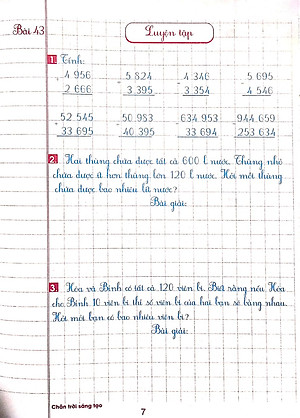 Bài 43
Luyện tập
1. Tính:
- 4 956 - 5 824 - 4 346 - 5 695
2 666 3 395 3 354 4 546
- 52 545 - 50 953 - 634 953 - 944 659
33 695 40 395 33 694 253 634
2. Hai thùng chứa được tất cả 600 l nước. Thùng nhỏ
chứa được ít hơn thùng lớn 120 l nước. Hỏi mỗi thùng
chứa được bao nhiêu lít nước?
Bài giải:
3. Hòa và Bình có tất cả 120 viên bi. Biết rằng nếu Hòa
cho Bình 10 viên bi thì số viên bi của hai bạn sẽ bằng nhau.
Hỏi mỗi bạn có bao nhiêu viên bi?
Bài giải:
Chân trời sáng tạo
7